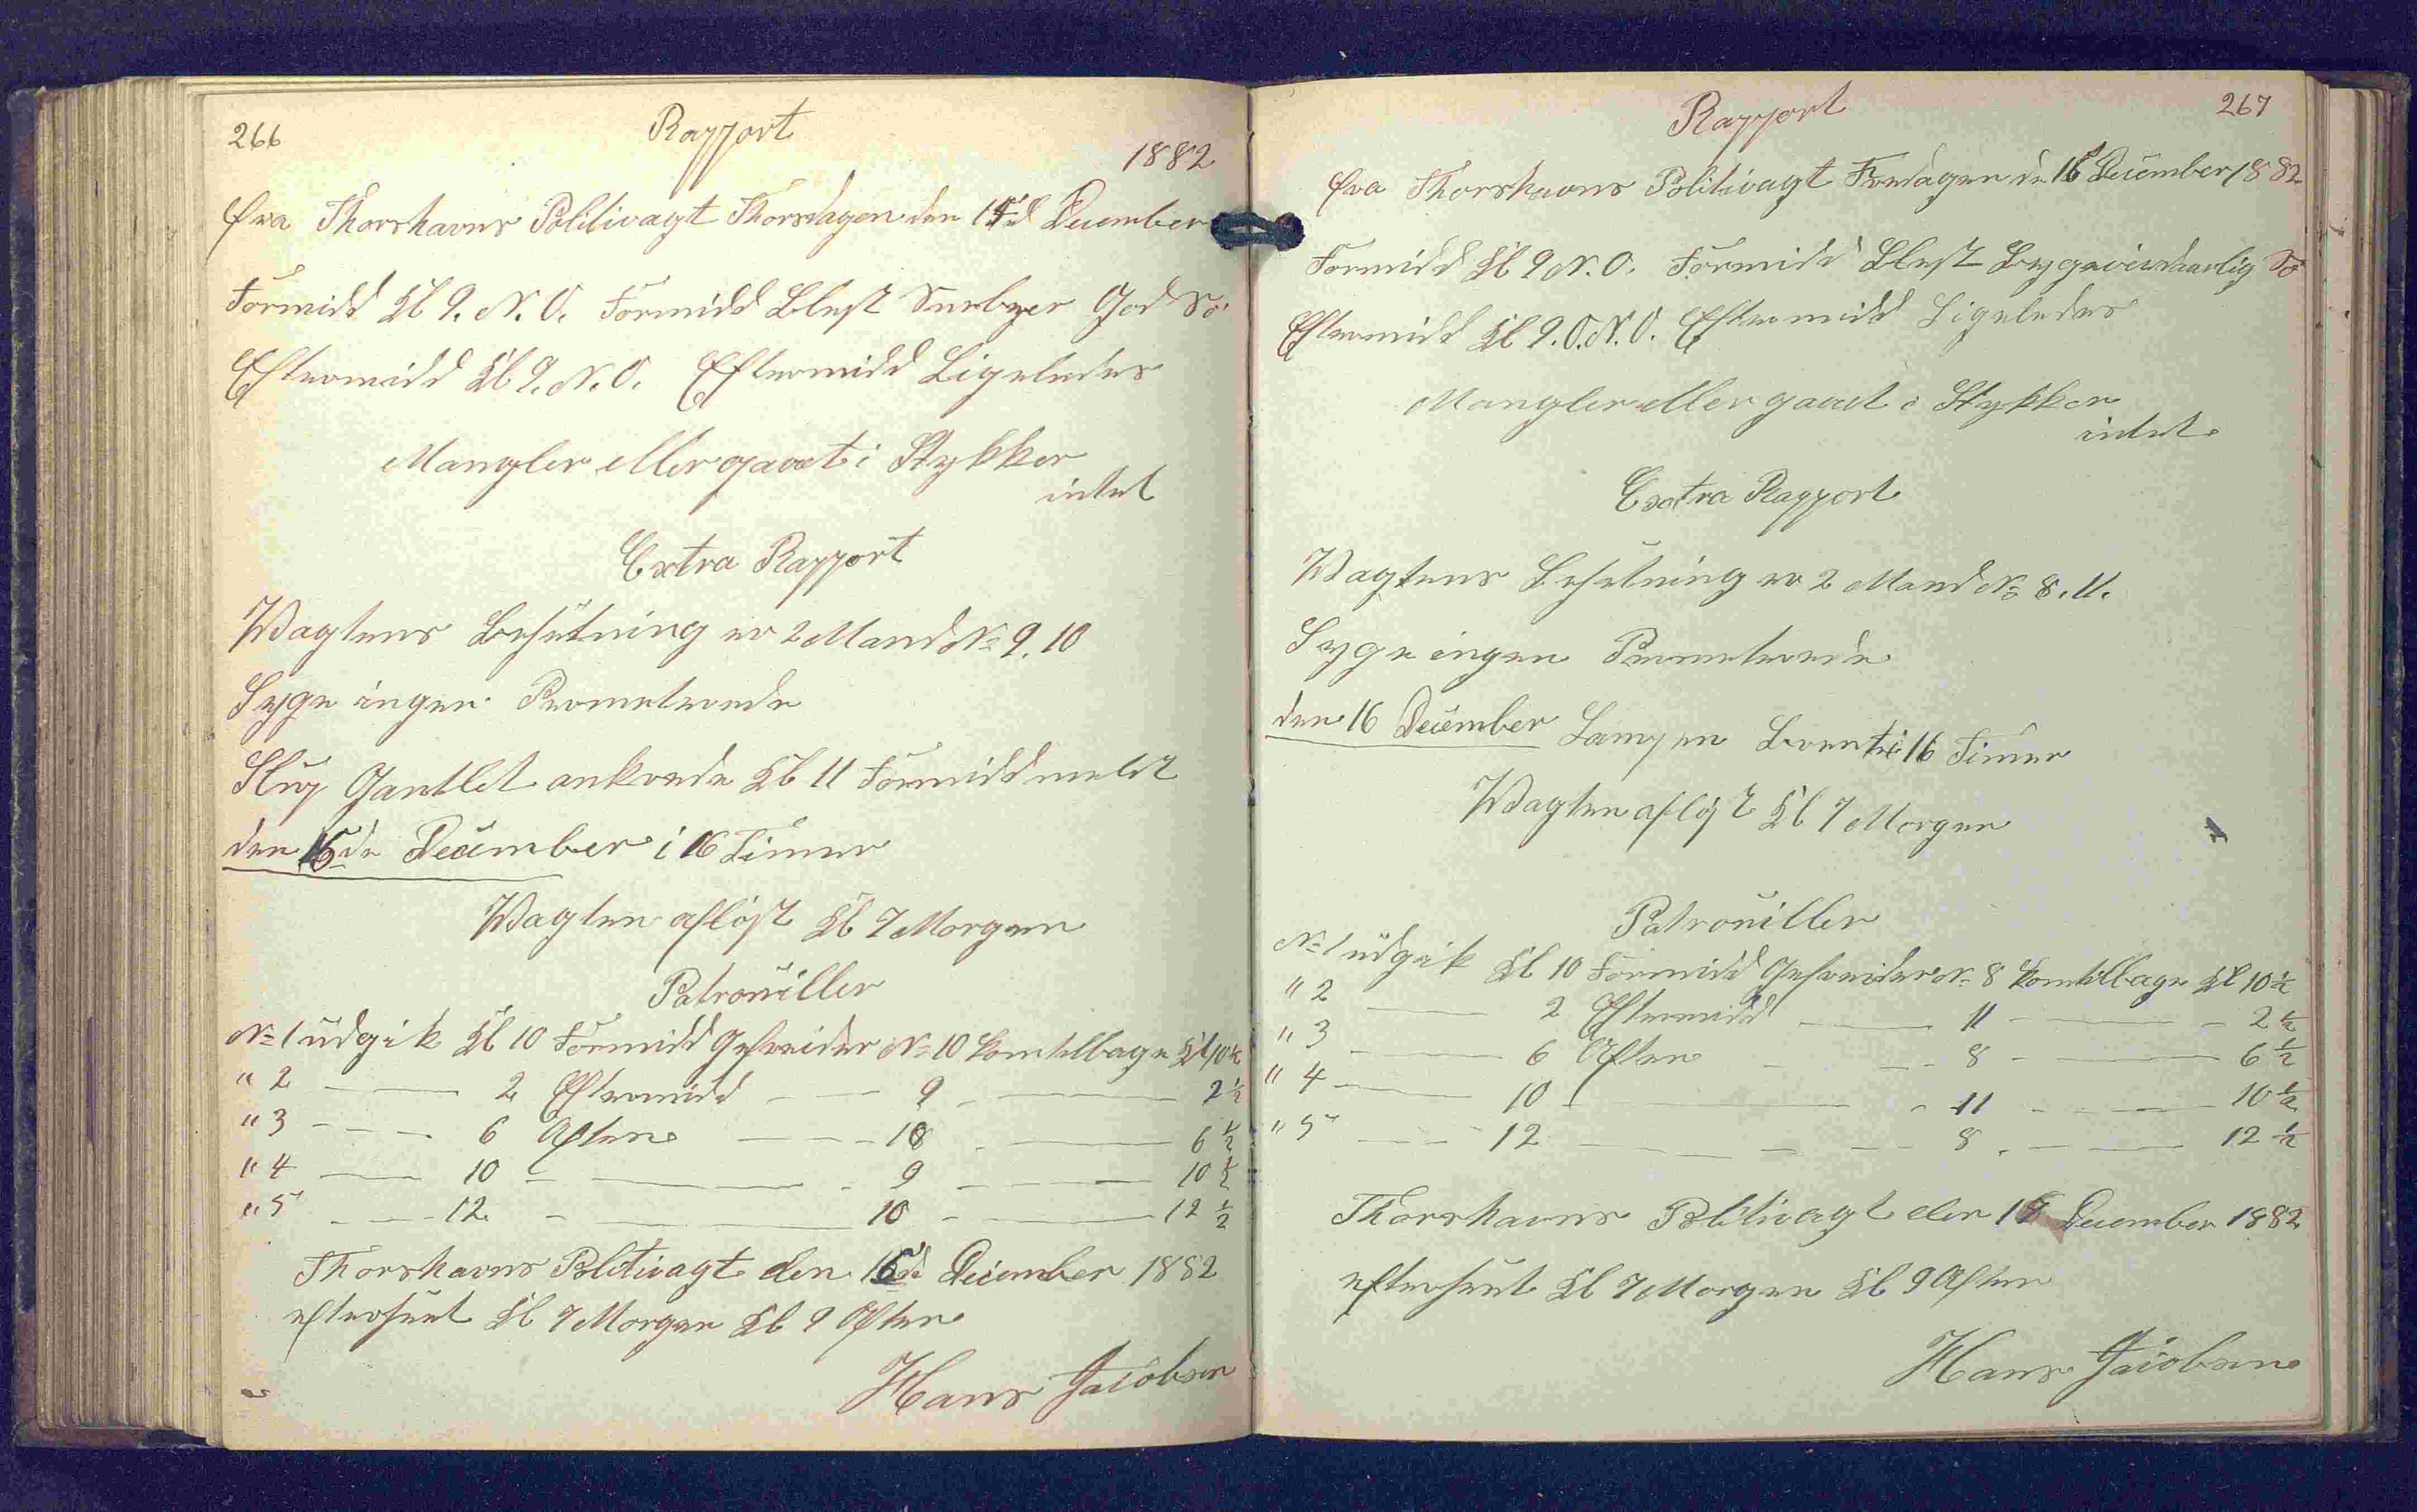 266
Rapport
1882
fra Thorshavns Politivagt Thorsdagen den 14d December
Formidd Kl 9. N. O. Formidd Blæst Sneebyer God Sö
Eftermidd Kl 9. N. O. Eftermidd Ligeledes
Mangler eller gaaet i Stykker
intet
Extra Rapport
Wagtens Besætning er 2 Mand No 9. 10
Syge ingen Permeterede
Slup Gantlet ankrede Kl 11 Formidd meldt
den 15de December i 16 Timer
Wagten aflöst Kl 7 Morgen
Patrouiller
No 1 udgik Kl 10 Formidd Gefreider No 10 kom tilbage Kl 10 ½
" 2 — 2 Eftermidd — 9 — 2 ½
" 3 — 6 Aften — 10 — 6 ½
" 4 — 10 — 9 — 10 ½
" 5 — 12 — 10 — 12 ½
Thorshavns Politivagt den 15de December 1882
efterseet Kl 7 Morgen Kl 9 Aften
Hans Jacobsen
267
Rapport
fra Thorshavns Politivagt Fredagen de December 1882
Formidd Kl 9 N. O. Formidd Blæst Bygeveir daarlig Sö
Eftermidd Kl 9. O. N. O. Eftermidd Ligeledes
Mangler eller gaaet i Stykker
intet
Extra Rapport
Wagtens Besætning er 2 Mand No 8. 11.
Syge ingen Permeterede
den 16 December Lampen Brente i 16 Timer
Wagten aflöst Kl 7 Morgen
Patrouiller
No 1 udgik Kl 10 Formidd Gefreider No 8 kom tilbage Kl 10 ½
" 2 — 2 Eftermidd — 11 — 2 ½
" 3 — 6 Aften — 8 — 6 ½
" 4 — 10 — 11 — 10 ½
" 5 — 12 — 8 — 12 ½
Thorshavns Politivagt den December 1882
efterseet Kl 7 Morgen Kl 9 Aften
Hans Jacobsen